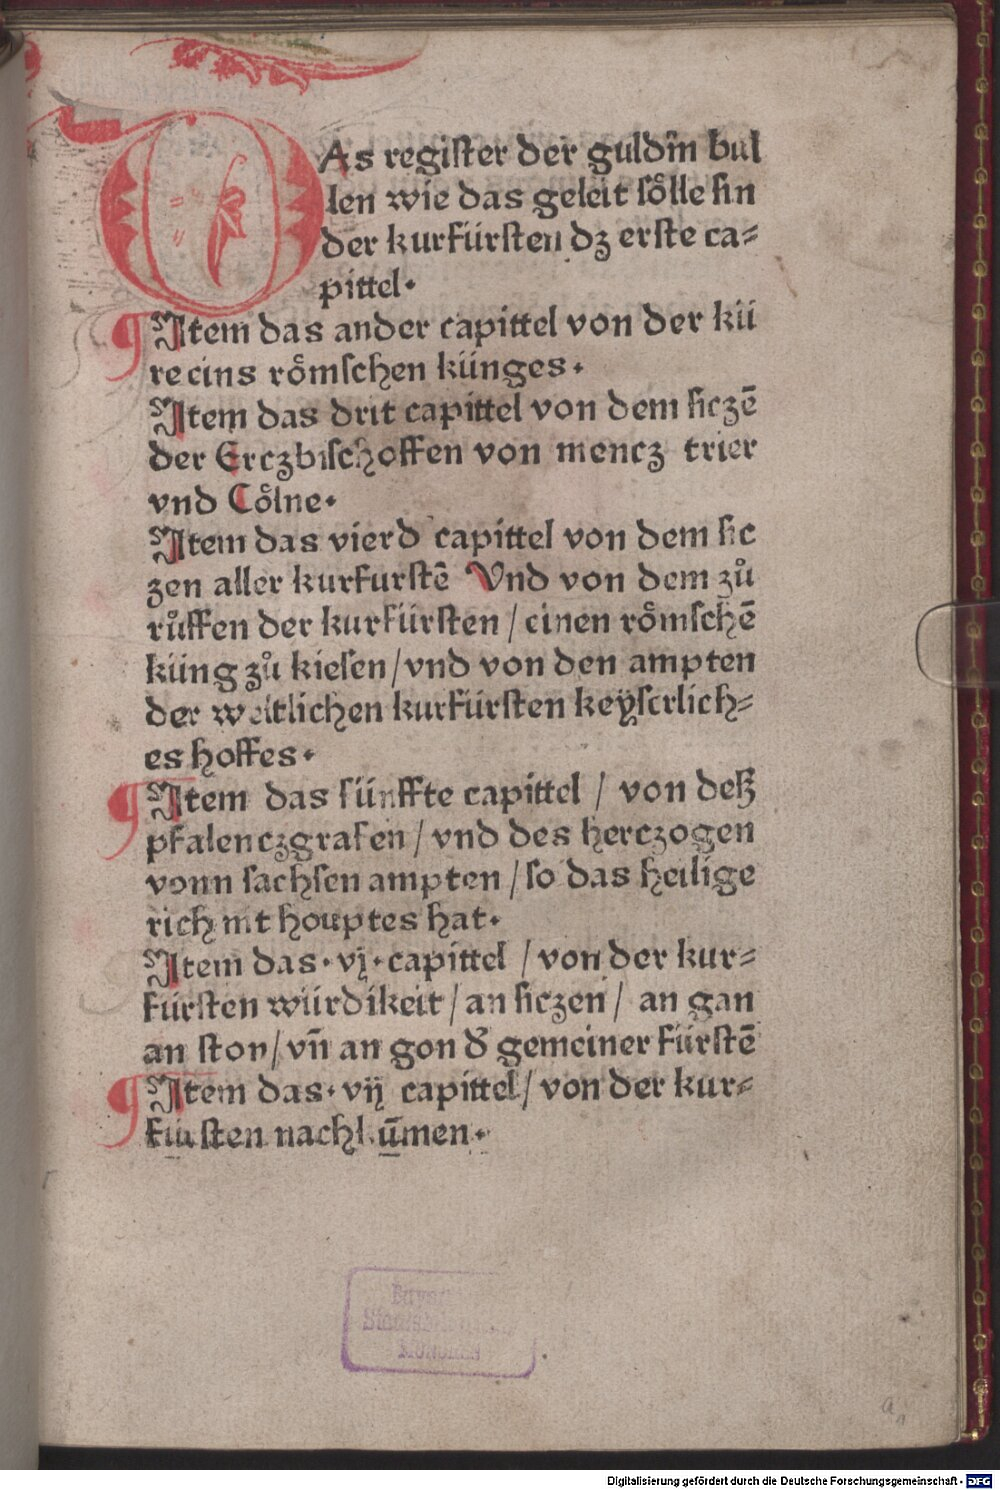 DAs register der guldin bul
len wie das geleit sölle sin
der kurfürsten dz erste ca⸗
pittel·
Item das ander capittel von der kü
re eins römschen künges·
Item das drit capittel von dem siczē
der Erczbischoffen von mencz trier
vnd Cölne·
Item das vierd capittel von dem sic
zen aller kurfurstē Vnd von dem zů
růffen der kurfürsten / einen römschē
küng zů kiesen / vnd von den ampten
der weltlichen kurfürsten keyserlich⸗
es hoffes·
Item das fünffte capittel / von deß
pfalenczgrafen / vnd des herczogen
vonn sachsen ampten / so das heilige
rich nit houptes hat·
Item das·vj·capittel / von der kur⸗
fürsten würdikeit / an siczen / an gan
an ston / vn̄ an gon d̕ gemeiner fürstē
Item das·vij capittel / von der kur⸗
fürsten nachkūmen·
a
Digitalisierung gefördert durch die Deutsche Forschungsgemeinschaft - DFG